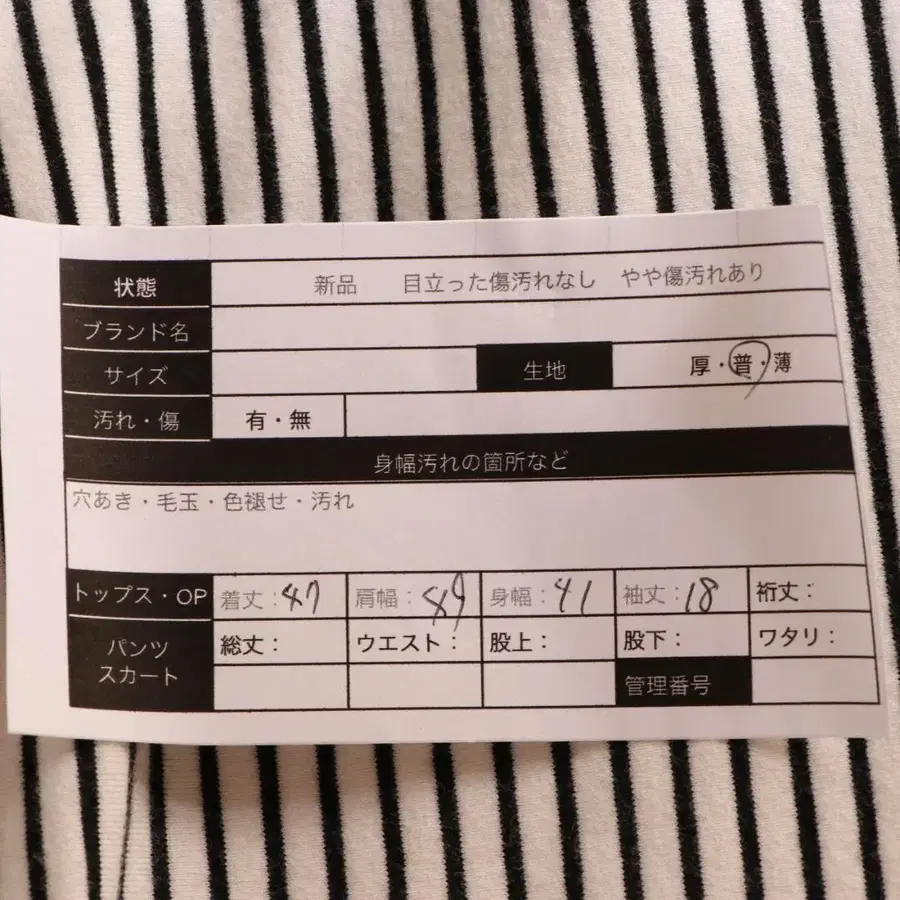 状態 新品 目立った傷汚れなし やや傷汚れあり
ブランド名
サイズ 生地 厚・普・薄
汚れ・傷 有・無
身幅汚れの箇所など
穴あき・毛玉・色褪せ・汚れ
トップス・OP 着丈:47 肩幅: 身幅:41 袖丈:18 裄丈:
パンツ 総丈: ウエスト: 股上: 股下: ワタリ:
スカート 管理番号